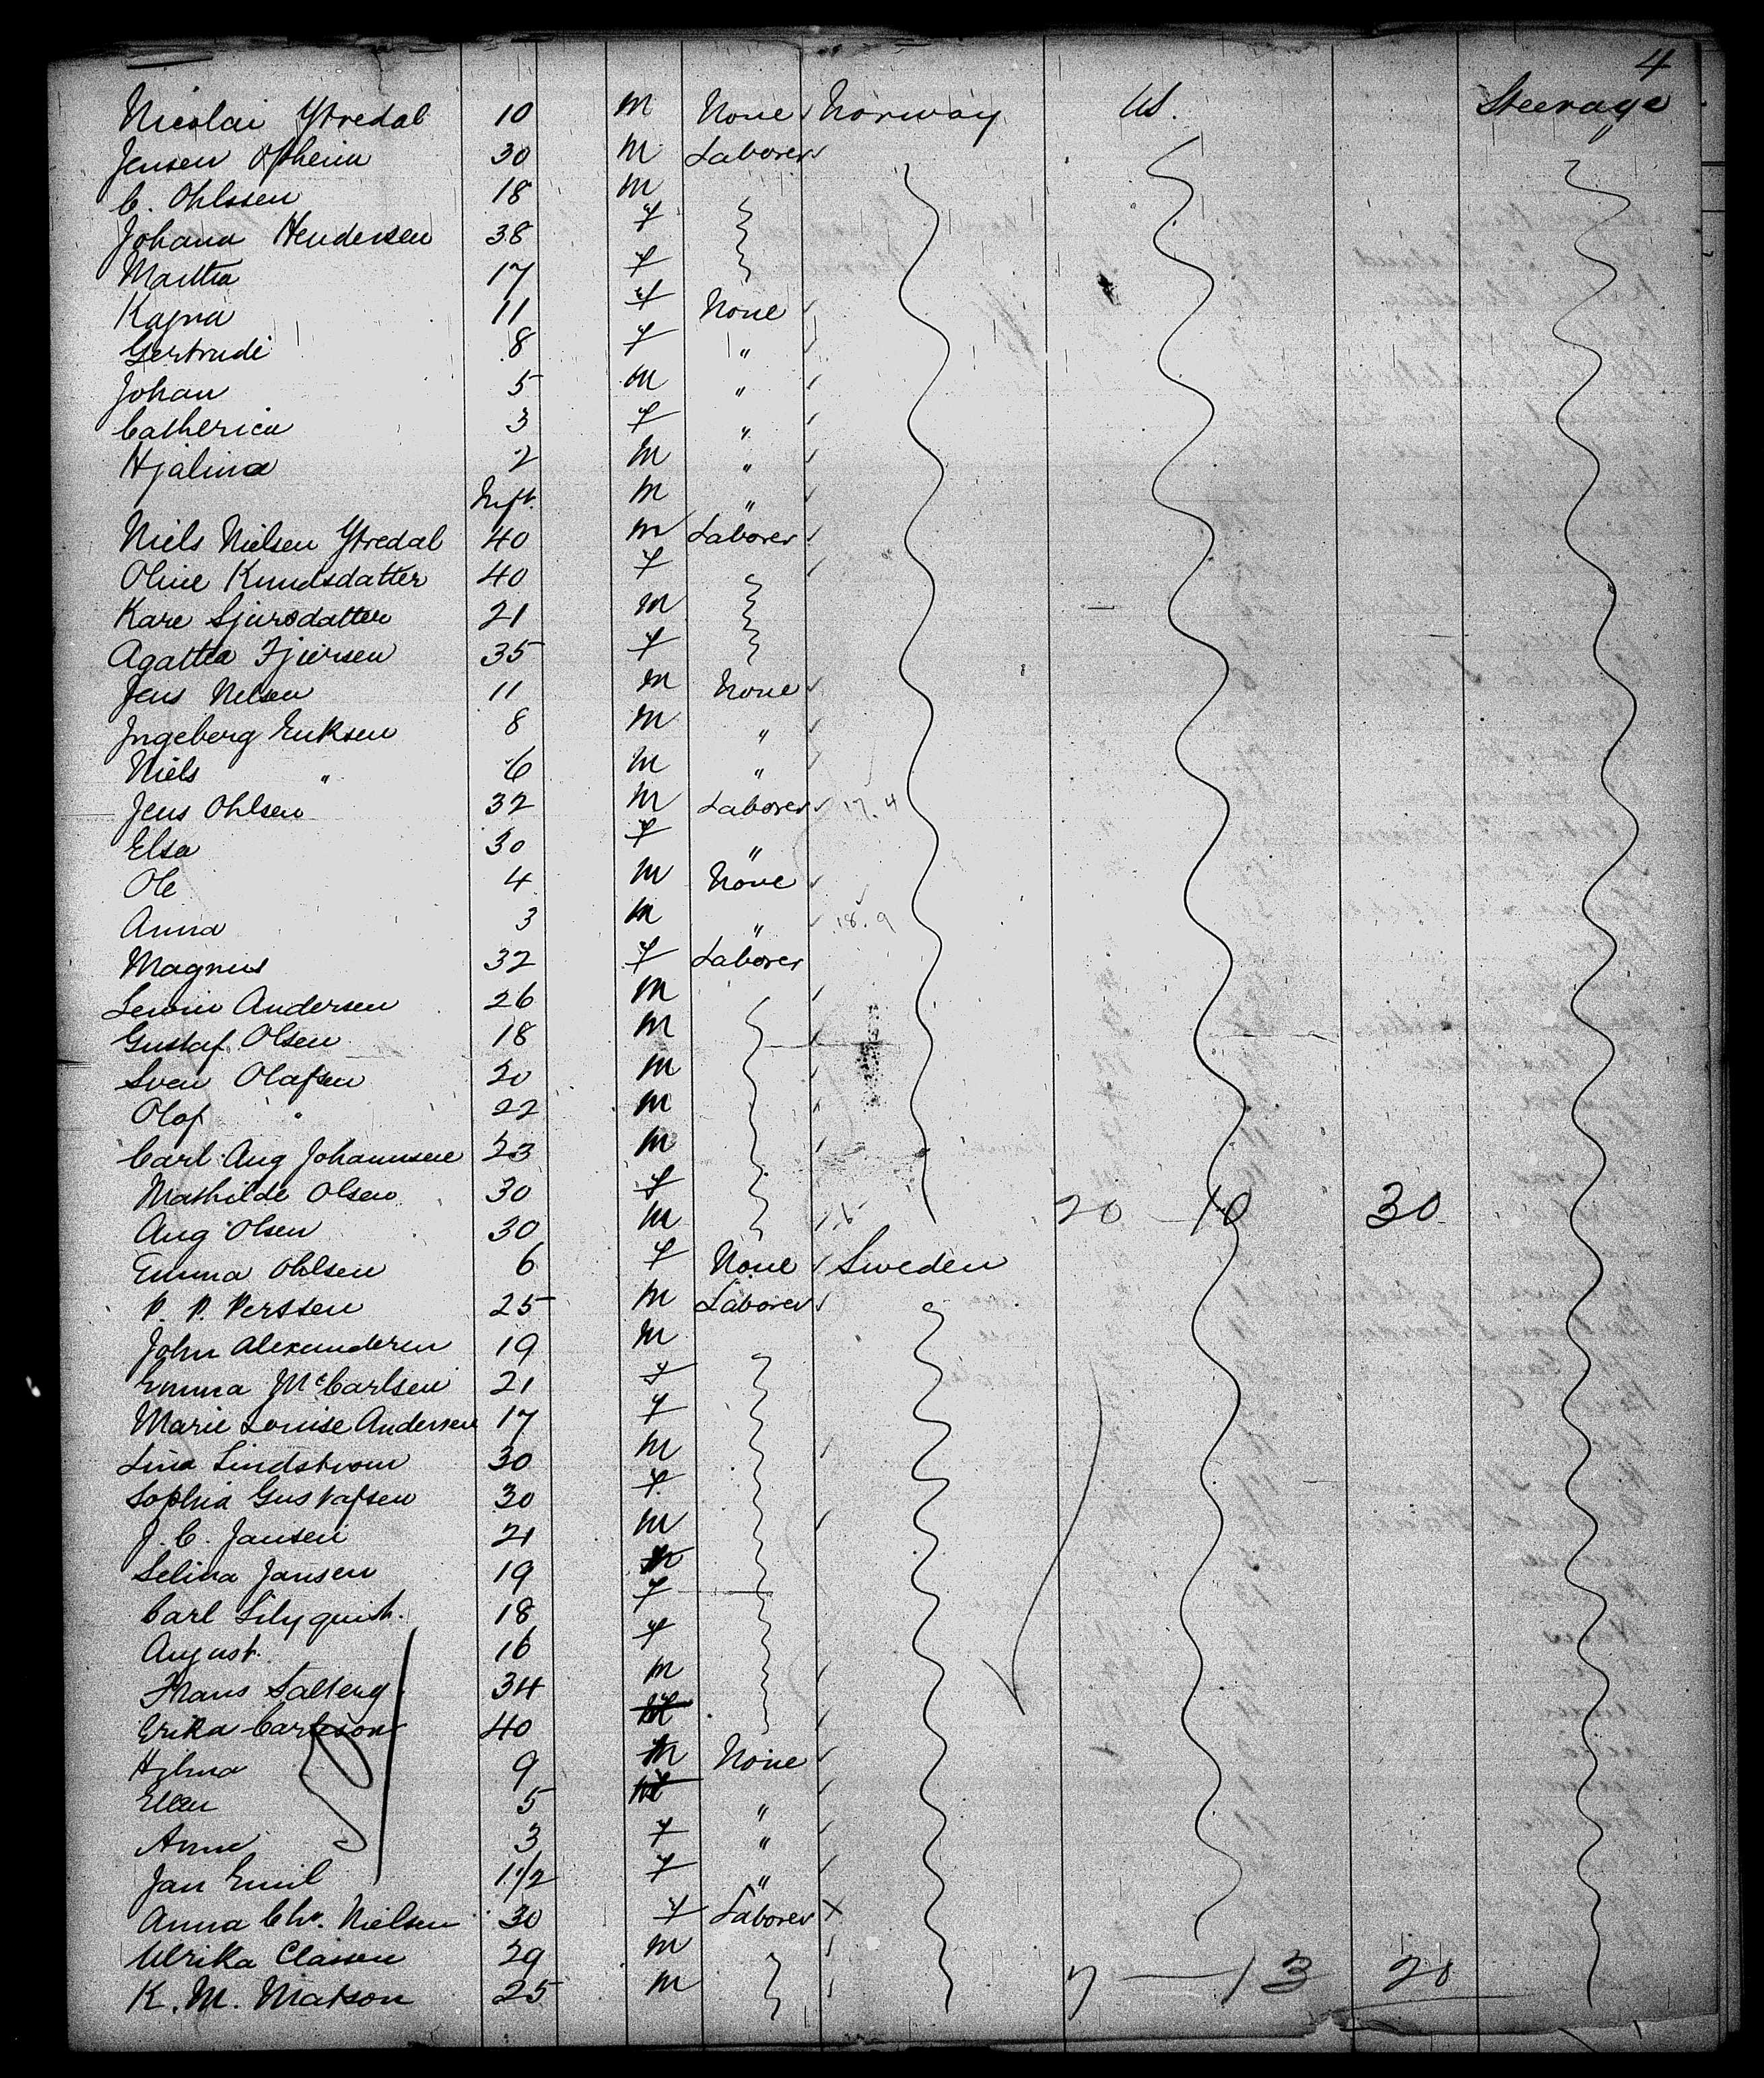 4
Nicolai Ytredal 10 m None Norway US. Steerage
Jensen Opheim 30 m Laborer
C. Ohlssen 18 m
Johana Hendersen 38 f
Martha 17 f
Kajna 11 f None
Gertrude 8 f "
Johan 5 m "
Catherica 3 f "
Hjalma 2 m "
Inft. m "
Niels Nielsen Ytredal 40 m Laborer
Oline Knudsdatter 40 f
Kare Sjursdatter 21 m
Agatha Fjiersen 35 f
Jens Nelsen 11 m None
Ingeberg Eriksen 8 m "
Niels " 6 m "
Jens Ohlsen 32 m Laborer 17.4
Elsa 30 f "
Ole 4 m None
Anna 3 m " 18.9
Magnus 32 f Laborer
Andersen 26 m
Gustaf Olsen 18 m
Sven Olafsen 20 m
Olof " 22 m
Carl Aug Johannsen 23 m
Mathilde Olsen 30 f
Aug Olsen 30 m 20 — 10 30
Emma Ohlsen 6 f None Sweden
P. P. Perssen 25 m Laborer
John Alexanderen 19 m
Emma McCarlsen 21 f
Marie Louise Andersen 17 f
Lina Lindstrom 30 m
Sophia Gustafsen 30 f
J. C. Jansen 21 m
Selina Jansen 19
Carl Lilyquist. 18 f
August. 16 f
Frans Salberg 34 m
Erika Carlsson 40
Hilma 9 m None
Ellen 5 "
Anne 3 f "
Jan Emil 1 1/2 f "
Anna Chr. Nielsen 30 f Laborer X
Ulrika Classen 29 m
K. M. Matson 25 m 7 — 13 20